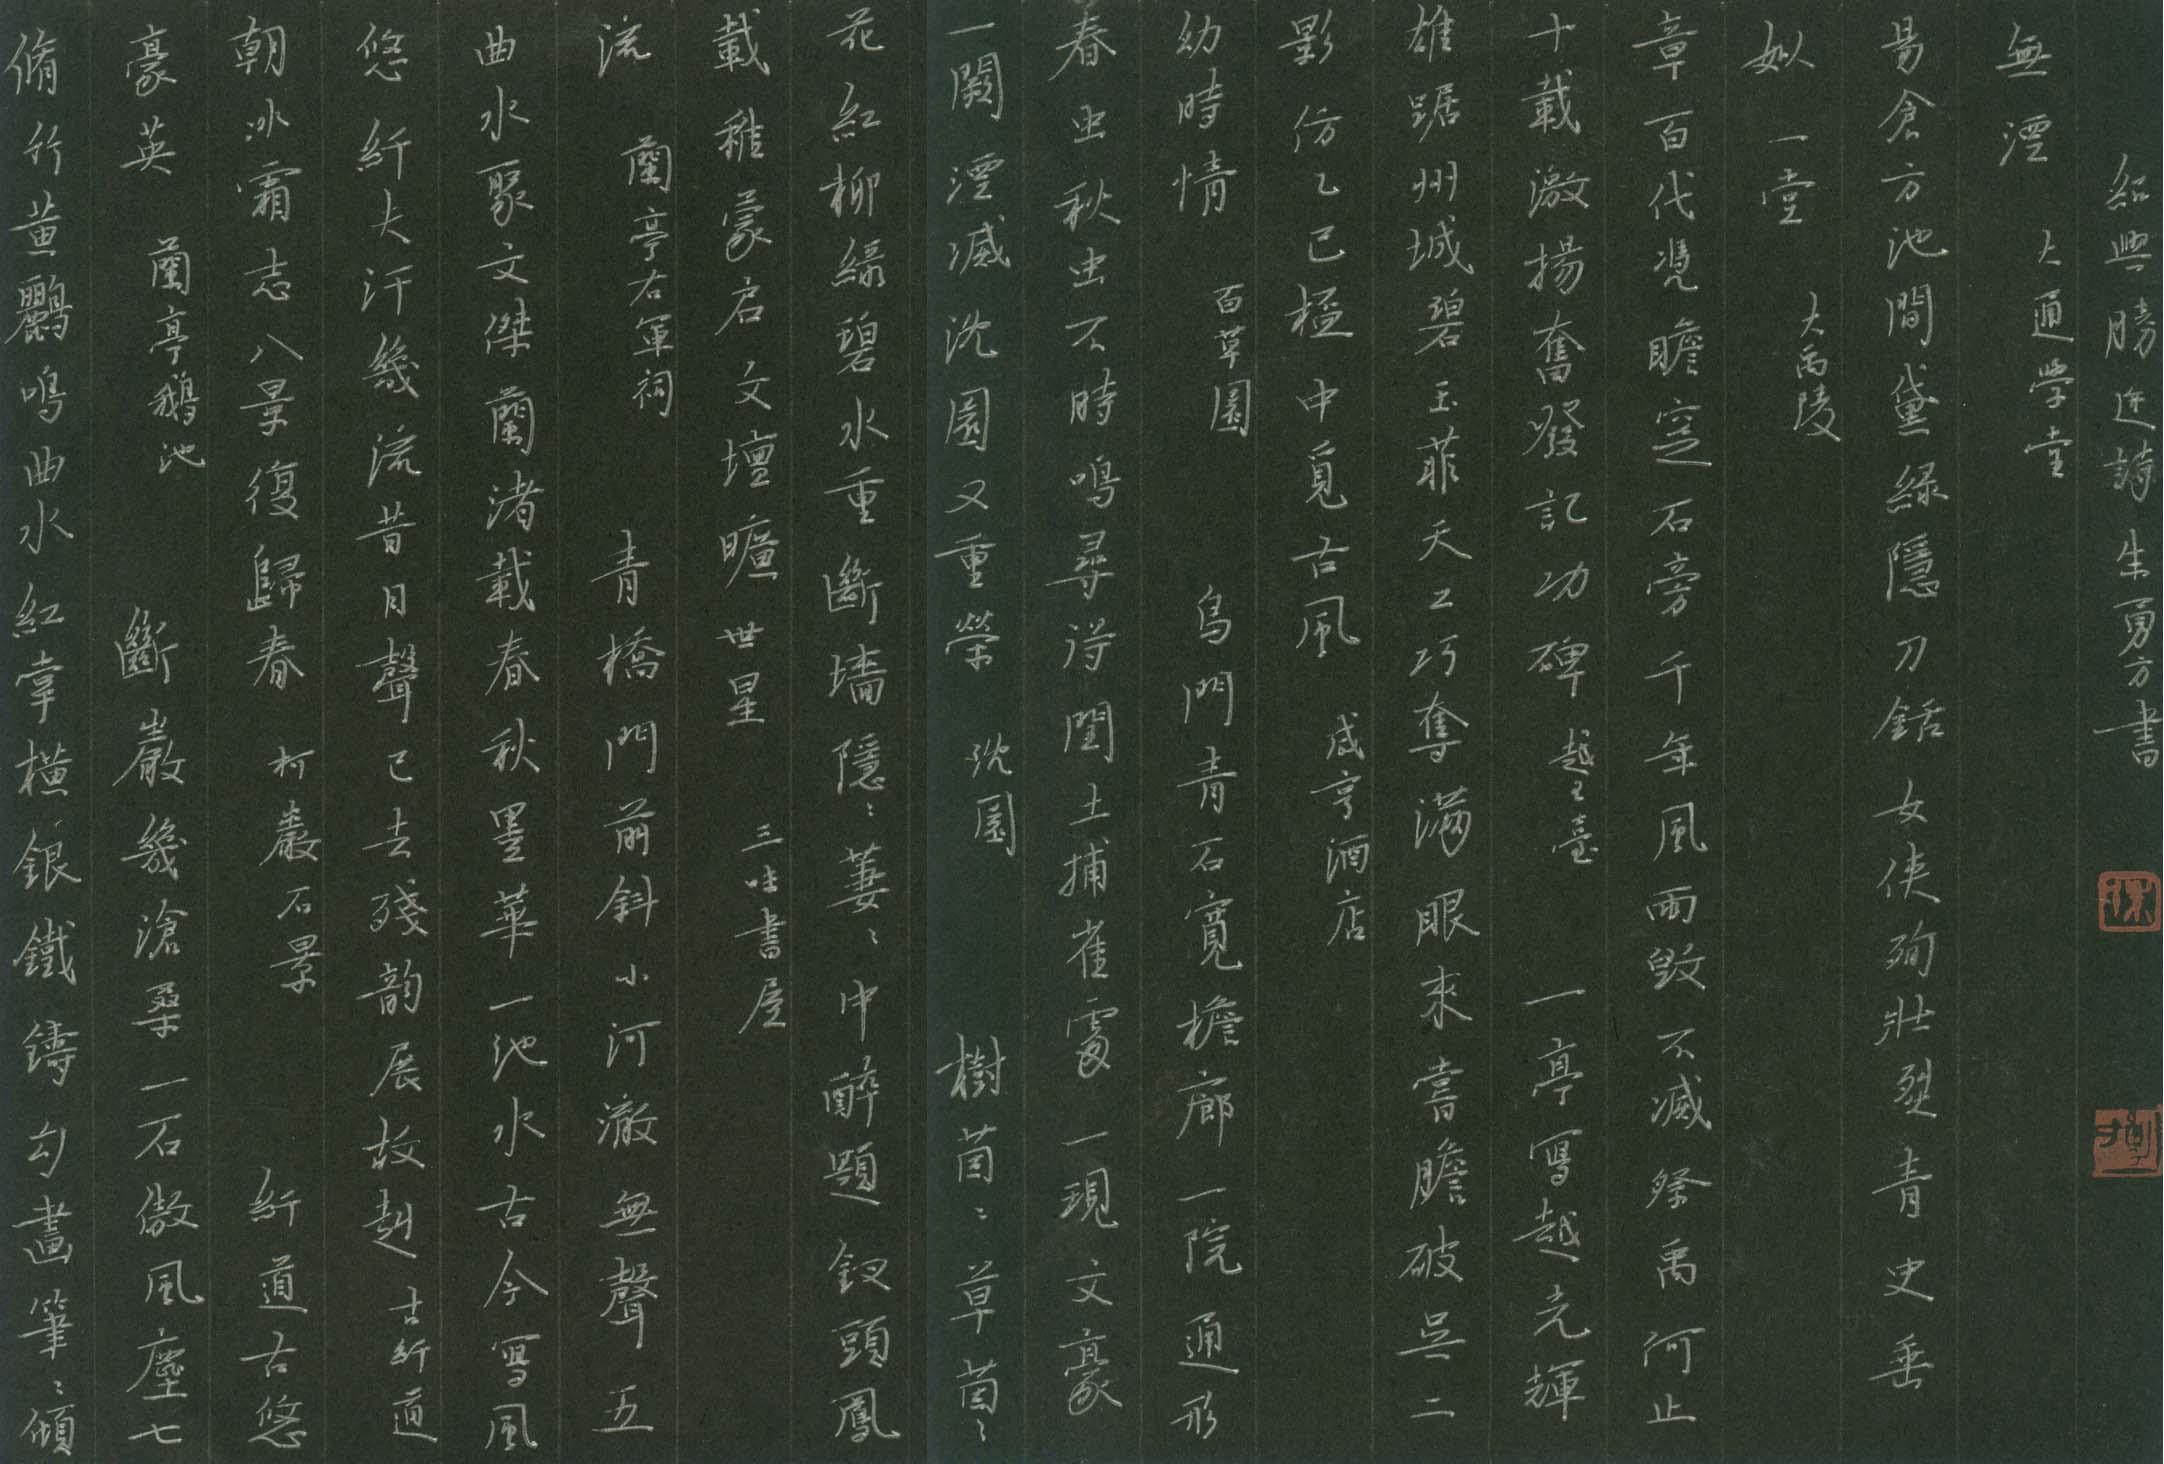 脩竹黃鸝鳴曲水紅掌橫銀鐵鑄勾畫筆〻傾
豪英 蘭亭鵝池 斷巖幾滄桑一石傲風塵七
朝冰霜志八景復歸春 柯巖石景 纤道古悠
悠纤夫汗幾流昔日聲已去殘韵展故越 古纤道
曲水聚文傑蘭渚載春秋墨華一池水古今寫風
流 蘭亭右軍祠 青橋門前斜小河澈無聲五
載稚蒙启文壇曠世星 三味書屋
花紅柳綠碧水重斷墻隱〻萋〻中醉題釵頭鳳
一闋湮滅沈園又重榮 沈園 樹茵〻草茵〻
春虫秋虫不時鳴尋得閏土捕雀處一現文豪
幼時情 百草園 烏門青石寬檐廊一院通形
影仿乙己楹中覓古風 咸亨酒店
雄踞州城碧玉菲天工巧奪滿眼來嘗膽破吳二
十載激揚奮發記功碑 越王臺 一亭寫越光輝
章百代凭瞻窆石旁千年風雨毀不滅祭禹何止
姒一堂 大禹陵
易倉方池間黛綠隱刀銛女侠殉壯烈青史垂
無湮 大通学堂
紹興勝迹詩朱勇方書